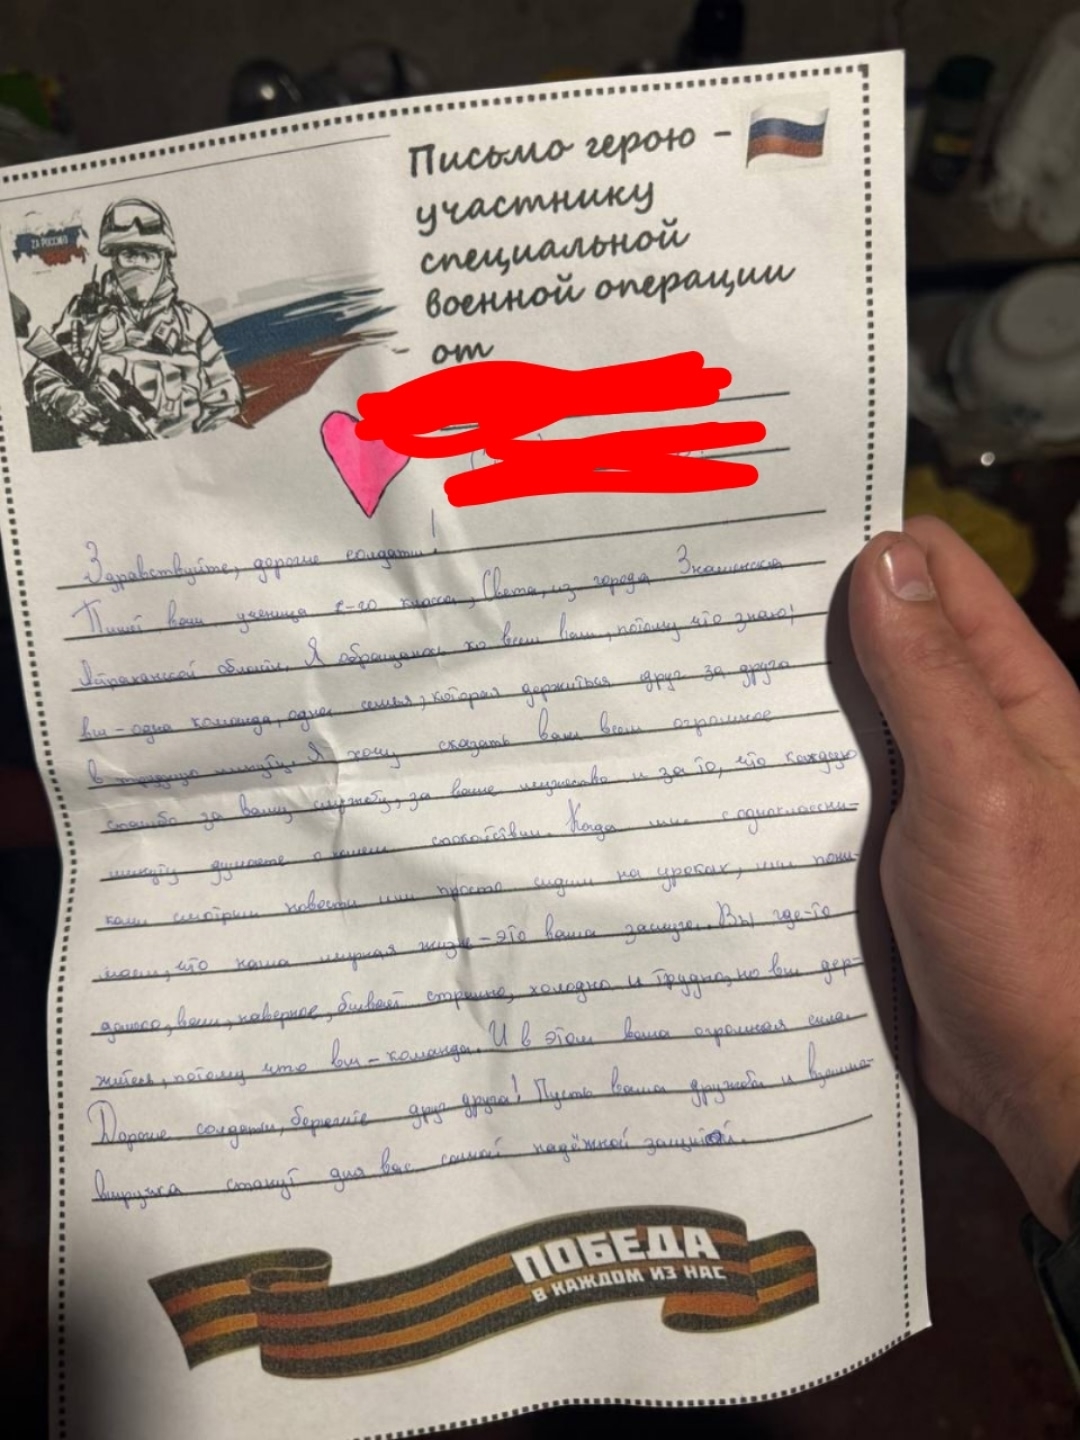 ZA РОССИЮ
Письмо герою -
участнику
специальной
военной операции
от
Здравствуйте, дорогие солдаты!
Пишет вам ученица класса, Света, из города Знаменска
Астраханской области. Я обращаюсь ко всем вам, потому что знаю!
вы - одна команда, одна семья, которая держиться друг за друга
в трудную минуту. Я хочу сказать вам всем огромное
спасибо за вашу службу, за ваше мужество и за то, что каждую
минуту думаете о нашем спокойствии. Когда мы с одноклассни-
ками смотрим новости или просто сидим на уроках, мы пони-
маем, что наша мирная жизнь - это ваша заслуга. Вы где-то
далеко, вам, наверное, бывает страшно, холодно и трудно, но вы дер-
житесь, потому что вы - команда. И в этом ваша огромная сила.
Дорогие солдаты, берегите друг друга! Пусть ваша дружба и взаимо-
выручка станут для вас самой надёжной защитой.
ПОБЕДА
В КАЖДОМ ИЗ НАС